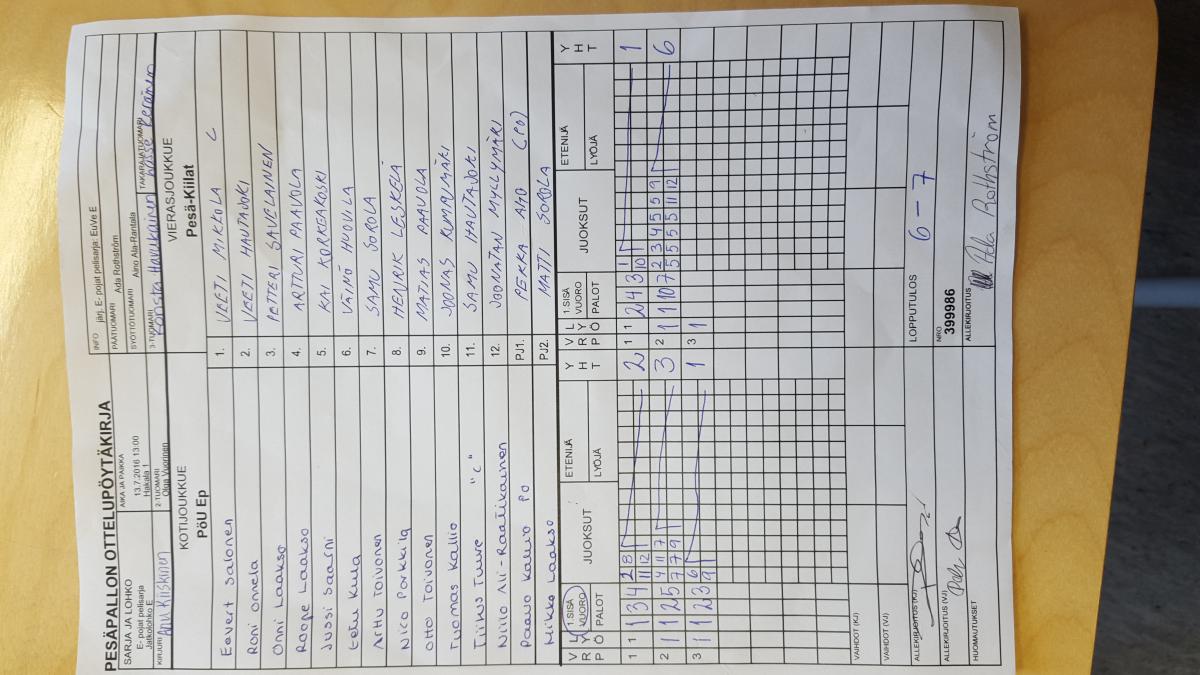 PESÄPALLON OTTELUPÖYTÄKIRJA
SARJA JA LOHKO
E- pojat pelisarja
Jatkolohko E
AIKA JA PAIKKA
13.7.2016 13:00
Hakala 1
INFO järj. E- pojat pelisarja: EuVe E
PÄÄTUOMARI Ada Rothström
SYÖTTÖTUOMARI Aino Ala-Rantala
KIRJURI Anu Kiiskinen
2-TUOMARI
Olga Vuorinen
3-TUOMARI
Konsta Havukainen
TAKARAJATUOMARI
Lasse Keränen
KOTIJOUKKUE
PöU Ep
VIERASJOUKKUE
Pesä-Kiilat
Eevert Salonen 1. VEETI MIKOLA C
Roni Onnela 2. VEETI HAUTAJOKI
Onni Laakso 3. PETTERI SAVELAINEN
Roope Laakso 4. ARTTURI PAAVOLA
Jussi Saarni 5. KAI KORKEAKOSKI
Eetu Kula 6. VÄINÖ HUOVILA
Arttu Toivonen 7. SAMU SOROLA
Nico Porkkila 8. HENRIK LESKELÄ
Otto Toivonen 9. MATIAS PAAVOLA
Tuomas Kallio 10. JOONAS KUMPUMÄKI
Tiitus Tuure "c" 11. SAMU HAUTAJOKI
Niilo Ali-Raatikainen 12. JOONATAN MYLLYMÄKI
Paavo Kallio PO PJ1. PEKKA AHO (PO)
Mikko Laakso PJ2. MATTI SOROLA
V L 1.SISÄ JUOKSUT ETENIJÄ Y V L 1.SISÄ JUOKSUT ETENIJÄ Y
R Y VUORO H R Y VUORO H
P Ö PALOT LYÖJÄ T P Ö PALOT LYÖJÄ T
1 1 1 3 4 2 8 2 1 1 2 4 3 1 1
11 12 10
2 1 1 2 5 4 11 7 3 2 1 1 10 7 2 3 4 5 5 9 6
7 7 9 5 5 5 5 11 12
3 1 1 2 3 6 1 3 1
9
VAIHDOT (KJ)
VAIHDOT (VJ)
ALLEKIRJOITUS (KJ)
LOPPUTULOS 6 - 7
ALLEKIRJOITUS (VJ)
NRO
399986
HUOMAUTUKSET
ALLEKIRJOITUS Ada Rothström